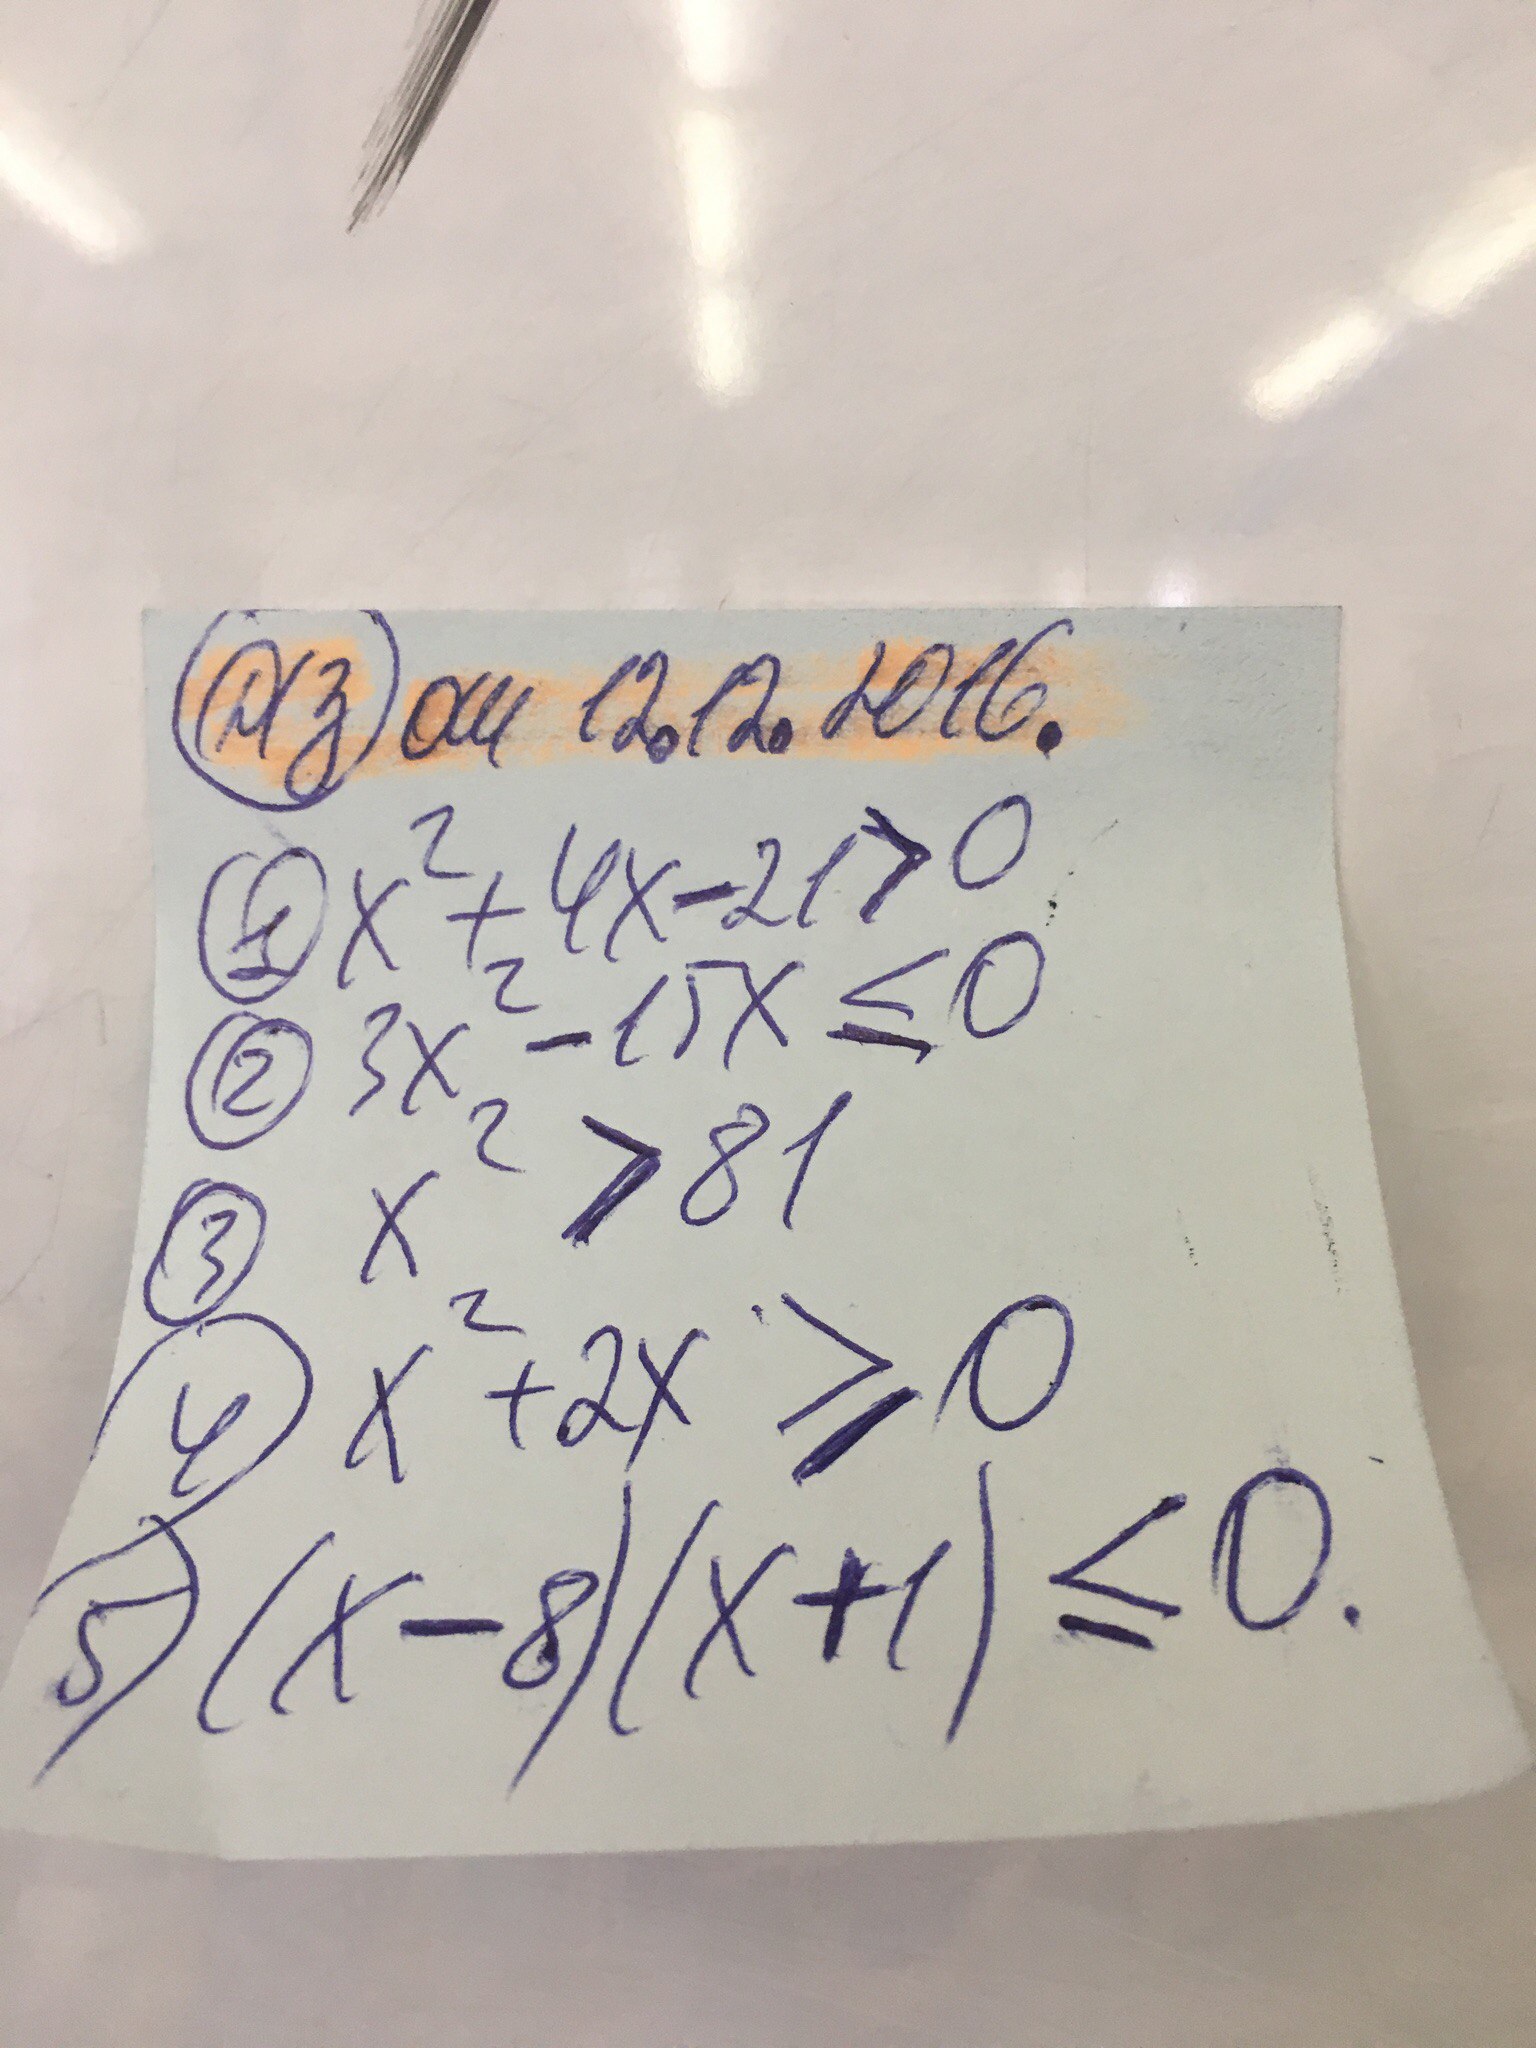 ДЗ на 12.12.2016.
1 x² + 4x - 21 > 0
2 3x² - 15x ≤ 0
3 x² > 81
4 x² + 2x ≥ 0
5 (x - 8)(x + 1) ≤ 0.